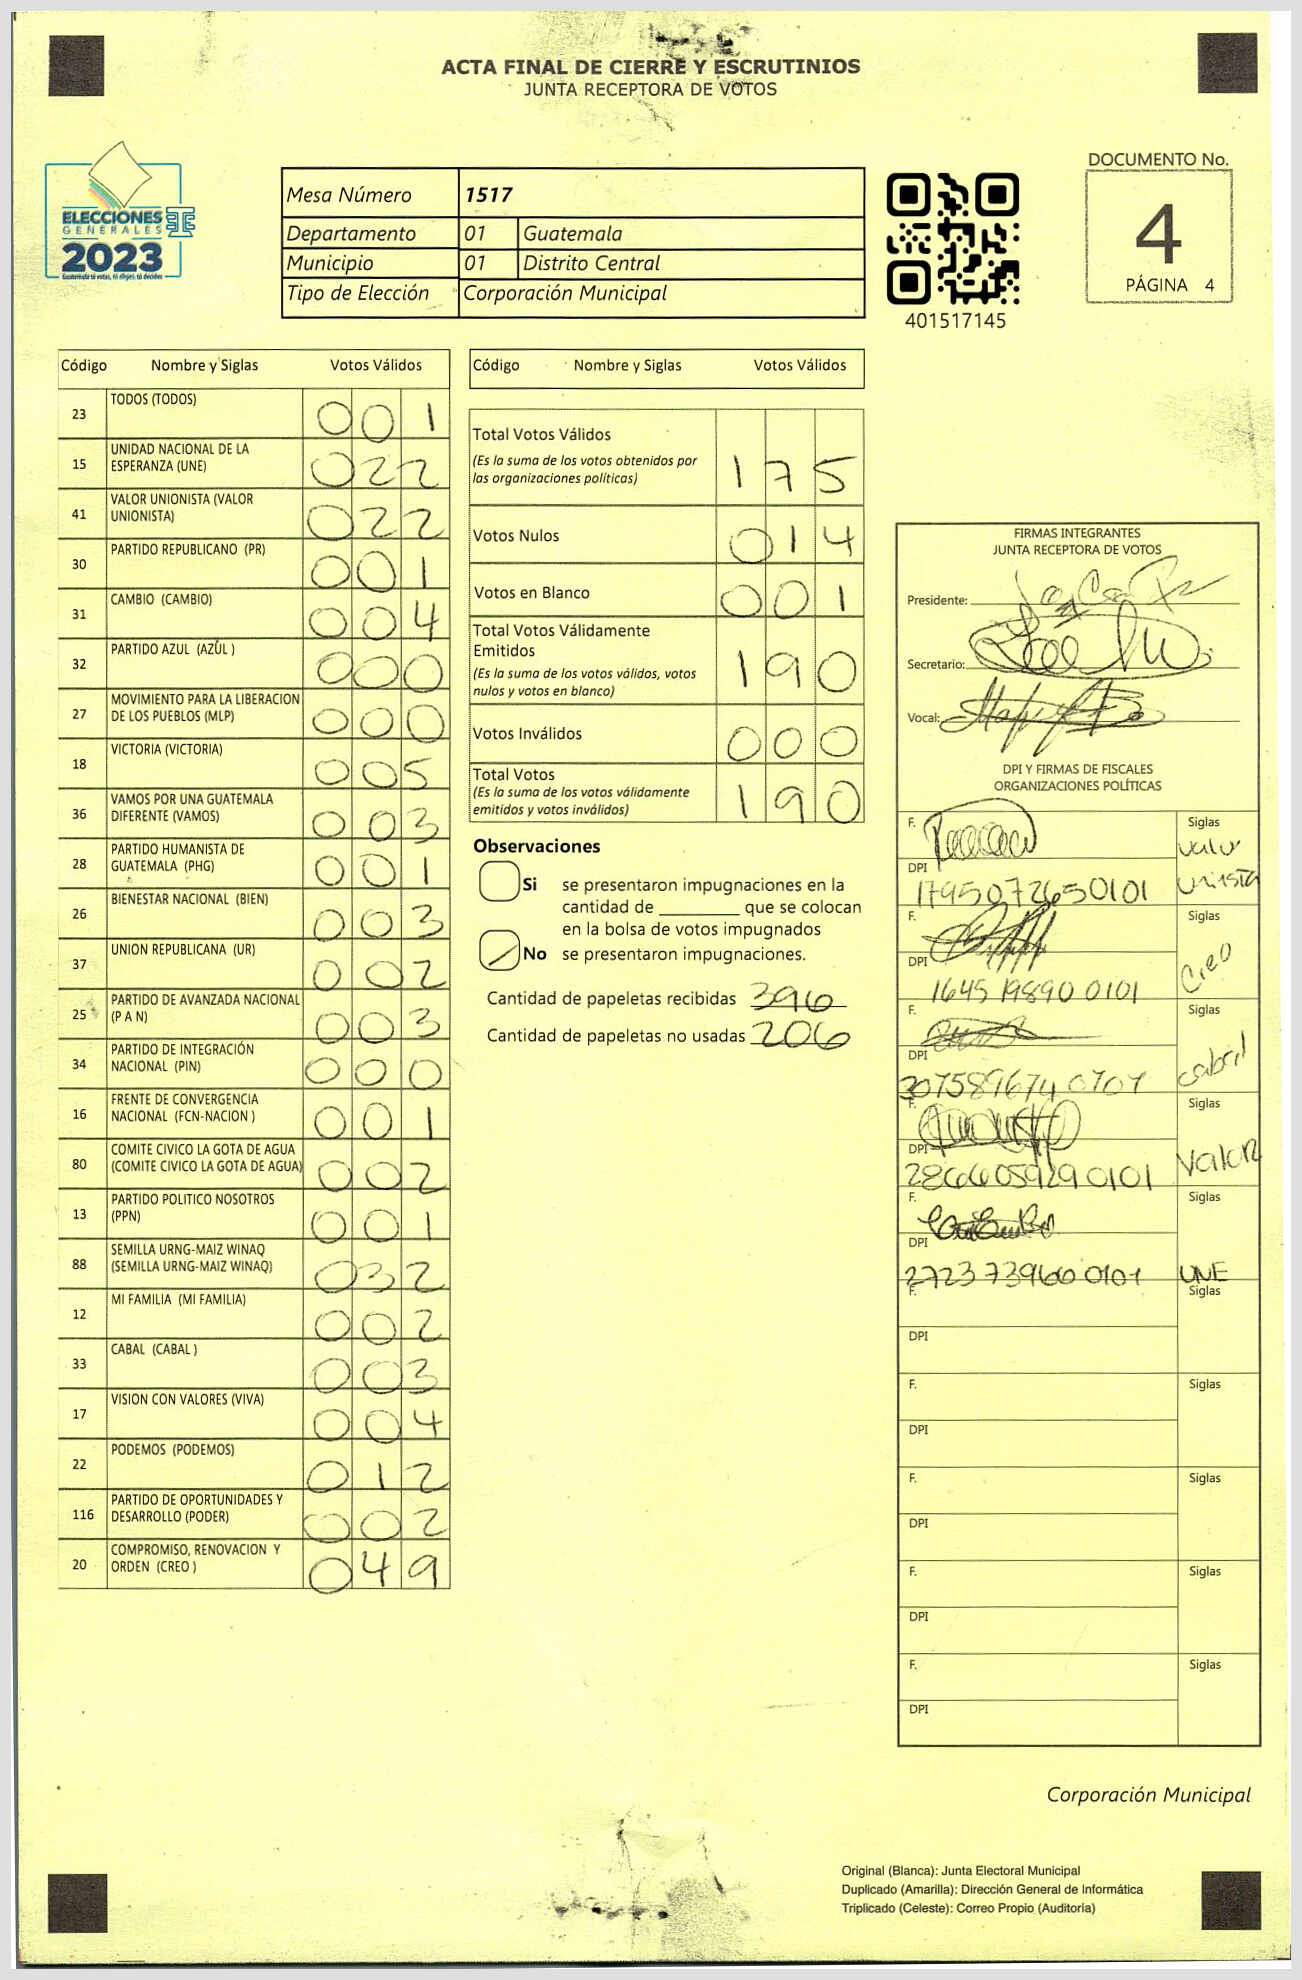 ACTA FINAL DE CIERRE Y ESCRUTINIOS
JUNTA RECEPTORA DE VOTOS
ELECCIONES
GENERALES
2023
Guatemala tú votas, tú eliges, tú decides
Mesa Número 1517
Departamento 01 Guatemala
Municipio 01 Distrito Central
Tipo de Elección Corporación Municipal
401517145
DOCUMENTO No.
4
PÁGINA 4
Código Nombre y Siglas Votos Válidos
23 TODOS (TODOS) 001
15 UNIDAD NACIONAL DE LA ESPERANZA (UNE) 022
41 VALOR UNIONISTA (VALOR UNIONISTA) 022
30 PARTIDO REPUBLICANO (PR) 001
31 CAMBIO (CAMBIO) 004
32 PARTIDO AZUL (AZUL ) 000
27 MOVIMIENTO PARA LA LIBERACION DE LOS PUEBLOS (MLP) 000
18 VICTORIA (VICTORIA) 005
36 VAMOS POR UNA GUATEMALA DIFERENTE (VAMOS) 003
28 PARTIDO HUMANISTA DE GUATEMALA (PHG) 001
26 BIENESTAR NACIONAL (BIEN) 003
37 UNION REPUBLICANA (UR) 002
25 PARTIDO DE AVANZADA NACIONAL (P A N) 003
34 PARTIDO DE INTEGRACIÓN NACIONAL (PIN) 000
16 FRENTE DE CONVERGENCIA NACIONAL (FCN-NACION ) 001
80 COMITE CIVICO LA GOTA DE AGUA (COMITE CIVICO LA GOTA DE AGUA) 002
13 PARTIDO POLITICO NOSOTROS (PPN) 001
88 SEMILLA URNG-MAIZ WINAQ (SEMILLA URNG-MAIZ WINAQ) 032
12 MI FAMILIA (MI FAMILIA) 002
33 CABAL (CABAL ) 003
17 VISION CON VALORES (VIVA) 004
22 PODEMOS (PODEMOS) 012
116 PARTIDO DE OPORTUNIDADES Y DESARROLLO (PODER) 002
20 COMPROMISO, RENOVACION Y ORDEN (CREO ) 049
Código Nombre y Siglas Votos Válidos
Total Votos Válidos 175
(Es la suma de los votos obtenidos por
las organizaciones políticas)
Votos Nulos 014
Votos en Blanco 001
Total Votos Válidamente
Emitidos 190
(Es la suma de los votos válidos, votos
nulos y votos en blanco)
Votos Inválidos 000
Total Votos 190
(Es la suma de los votos válidamente
emitidos y votos inválidos)
Observaciones
Si se presentaron impugnaciones en la
cantidad de ________ que se colocan
en la bolsa de votos impugnados
No se presentaron impugnaciones.
Cantidad de papeletas recibidas 396
Cantidad de papeletas no usadas 206
FIRMAS INTEGRANTES
JUNTA RECEPTORA DE VOTOS
Presidente:
Secretario:
Vocal:
DPI Y FIRMAS DE FISCALES
ORGANIZACIONES POLÍTICAS
F. Siglas
Valor
DPI 1795072650101 Unionista
F. Siglas
DPI 1645198900101 Creo
F. Siglas
DPI 3075896740701 Cabal
F. Siglas
DPI 2866059290101 Valor
F. Siglas
DPI 2723739600101 UNE
F. Siglas
DPI
F. Siglas
DPI
F. Siglas
DPI
F. Siglas
DPI
F. Siglas
DPI
Corporación Municipal
Original (Blanca): Junta Electoral Municipal
Duplicado (Amarilla): Dirección General de Informática
Triplicado (Celeste): Correo Propio (Auditoría)